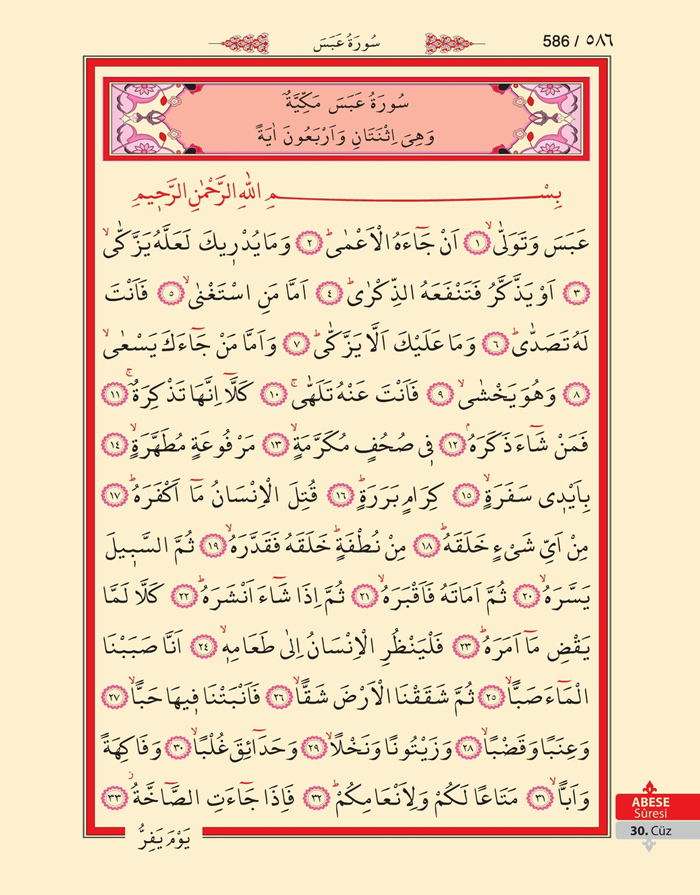 سُورَةُ عَبَسَ 586 / ٥٨٦
سُورَةُ عَبَسَ مَكِّيَّةٌ
وَهِيَ اِثْنَتَانِ وَاَرْبَعُونَ اٰيَةً
بِسْمِ اللهِ الرَّحْمٰنِ الرَّح۪يمِ
عَبَسَ وَتَوَلّٰىۙ ﴿١﴾ اَنْ جَٓاءَهُ الْاَعْمٰىۜ ﴿٢﴾ وَمَا يُدْر۪يكَ لَعَلَّهُ يَزَّكّٰىۙ
﴿٣﴾ اَوْ يَذَّكَّرُ فَتَنْفَعَهُ الذِّكْرٰىۜ ﴿٤﴾ اَمَّا مَنِ اسْتَغْنٰىۙ ﴿٥﴾ فَاَنْتَ
لَهُ تَصَدّٰىۜ ﴿٦﴾ وَمَا عَلَيْكَ اَلَّا يَزَّكّٰىۜ ﴿٧﴾ وَاَمَّا مَنْ جَٓاءَكَ يَسْعٰىۙ
﴿٨﴾ وَهُوَ يَخْشٰىۙ ﴿٩﴾ فَاَنْتَ عَنْهُ تَلَهّٰىۚ ﴿١٠﴾ كَلَّٓا اِنَّهَا تَذْكِرَةٌۚ ﴿١١﴾
فَمَنْ شَٓاءَ ذَكَرَهُۢ ﴿١٢﴾ ف۪ي صُحُفٍ مُكَرَّمَةٍۙ ﴿١٣﴾ مَرْفُوعَةٍ مُطَهَّرَةٍۙ ﴿١٤﴾
بِاَيْد۪ي سَفَرَةٍۙ ﴿١٥﴾ كِرَامٍ بَرَرَةٍۜ ﴿١٦﴾ قُتِلَ الْاِنْسَانُ مَٓا اَكْفَرَهُۜ ﴿١٧﴾
مِنْ اَيِّ شَيْءٍ خَلَقَهُۜ ﴿١٨﴾ مِنْ نُطْفَةٍۜ خَلَقَهُ فَقَدَّرَهُۙ ﴿١٩﴾ ثُمَّ السَّب۪يلَ
يَسَّرَهُۙ ﴿٢٠﴾ ثُمَّ اَمَاتَهُ فَاَقْبَرَهُۙ ﴿٢١﴾ ثُمَّ اِذَا شَٓاءَ اَنْشَرَهُۜ ﴿٢٢﴾ كَلَّا لَمَّا
يَقْضِ مَٓا اَمَرَهُۜ ﴿٢٣﴾ فَلْيَنْظُرِ الْاِنْسَانُ اِلٰى طَعَامِه۪ۙ ﴿٢٤﴾ اَنَّا صَبَبْنَا
الْمَٓاءَ صَبًّاۙ ﴿٢٥﴾ ثُمَّ شَقَقْنَا الْاَرْضَ شَقًّاۙ ﴿٢٦﴾ فَاَنْبَتْنَا ف۪يهَا حَبًّاۙ ﴿٢٧﴾
وَعِنَبًا وَقَضْبًاۙ ﴿٢٨﴾ وَزَيْتُونًا وَنَخْلًاۙ ﴿٢٩﴾ وَحَدَٓائِقَ غُلْبًاۙ ﴿٣٠﴾ وَفَاكِهَةً
وَاَبًّاۙ ﴿٣١﴾ مَتَاعًا لَكُمْ وَلِاَنْعَامِكُمْۜ ﴿٣٢﴾ فَاِذَا جَٓاءَتِ الصَّٓاخَّةُۘ ﴿٣٣﴾
يَوْمَ يَفِرُّ
ABESE
Sûresi
30. Cüz